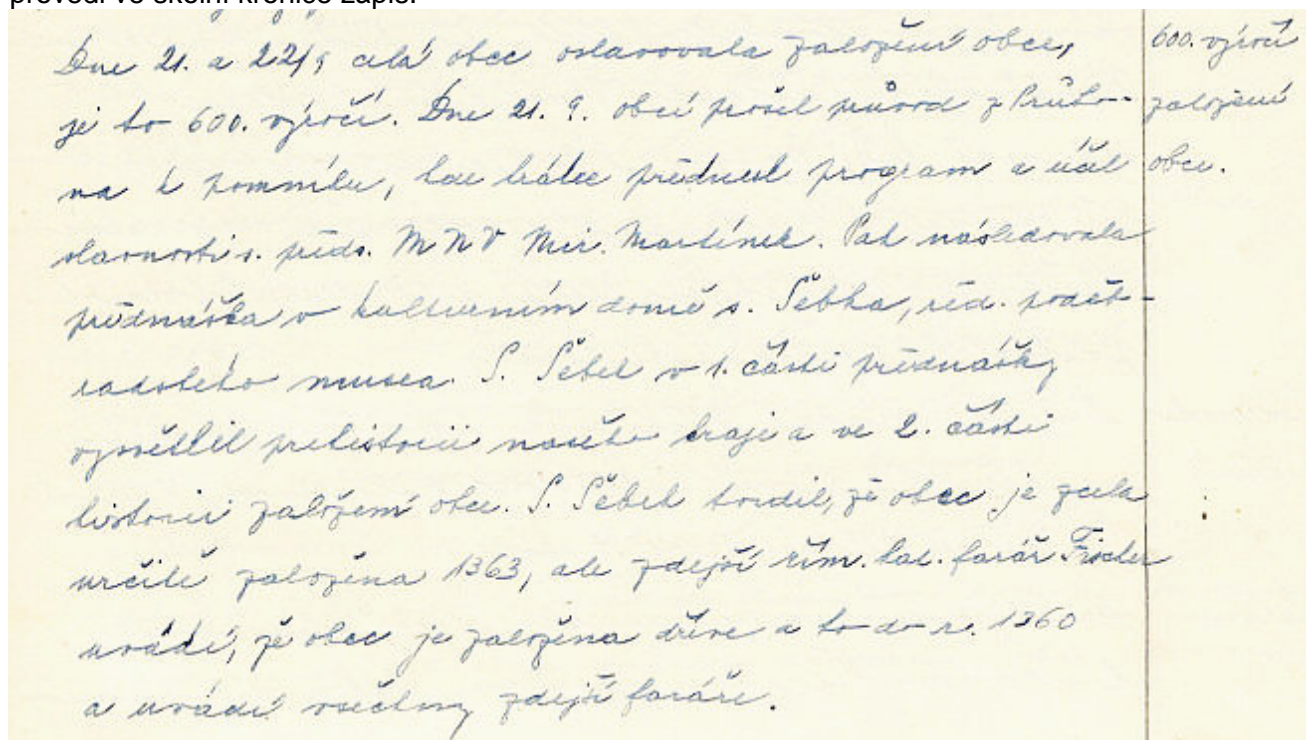 provedl ve školní kronice zápis:
Dne 21. a 22/9 celá obec oslavovala založení obce,
je to 600. výročí. Dne 21. 9. obcí prošel průvod z Průho-
na k pomníku, kde krátce přednesl program a účel
slavnosti s. předs. MNV Mir. Martínek. Pak následovala
přednáška v kulturním domě s. Šebka, řed. poděb-
radského musea. S. Šebek v 1. části přednášky
vysvětlil prehistorii našeho kraje a ve 2. části
historii založení obce. S. Šebek tvrdil, že obec je zcela
určitě založena 1363, ale zdejší řím. kat. farář Fischer
uvádí, že obec je založena dříve a to do r. 1360
a uvádí všechny zdejší faráře.
600. výročí
založení
obce.